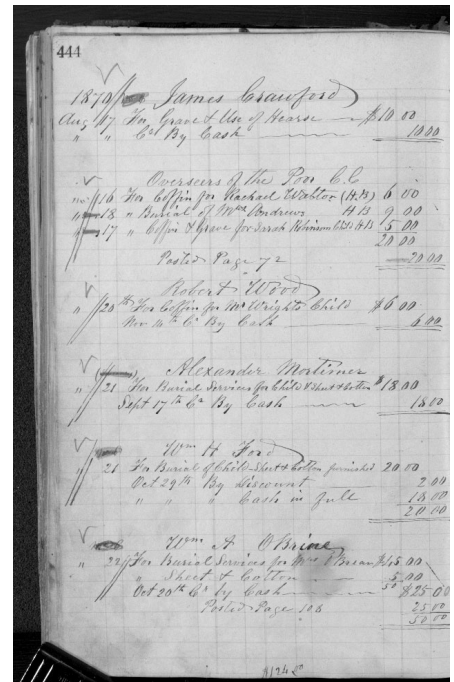 444
1870 James Crawford
Aug 17 For Grave & Use of Hearse $10 00
" " Cr By Cash 10 00
Overseers of the Poor C.C.
" 16 For Coffin for Rachael (H.B) 6 00
" 18 " Burial of Mrs Andrews H B 9 00
" 17 " Coffin & Grave for Sarah Robinson Child H B 5 00
20 00
Posted Page 72 20 00
Robert Wood
" 20th For Coffin for Mr Wrights Child $6 00
Nov 14th Cr By Cash 6 00
Alexander Mortimer
" 21 For Burial Services for Child & Sheet & Cotton $18.00
Sept 17th Cr By Cash 18 00
Wm H Ford
" 21 For Burial of Child Sheet & Cotton furnished 20 00
Oct 29th By Discount 2 00
" " " Cash in full 18 00
20 00
Wm A OBrine
" 22 For Burial Services for Mrs OBrian $45 00
" Sheet & Cotton 5 00
Oct 20th Cr by Cash 50 $25 00
Posted Page 106 25 00
50 00